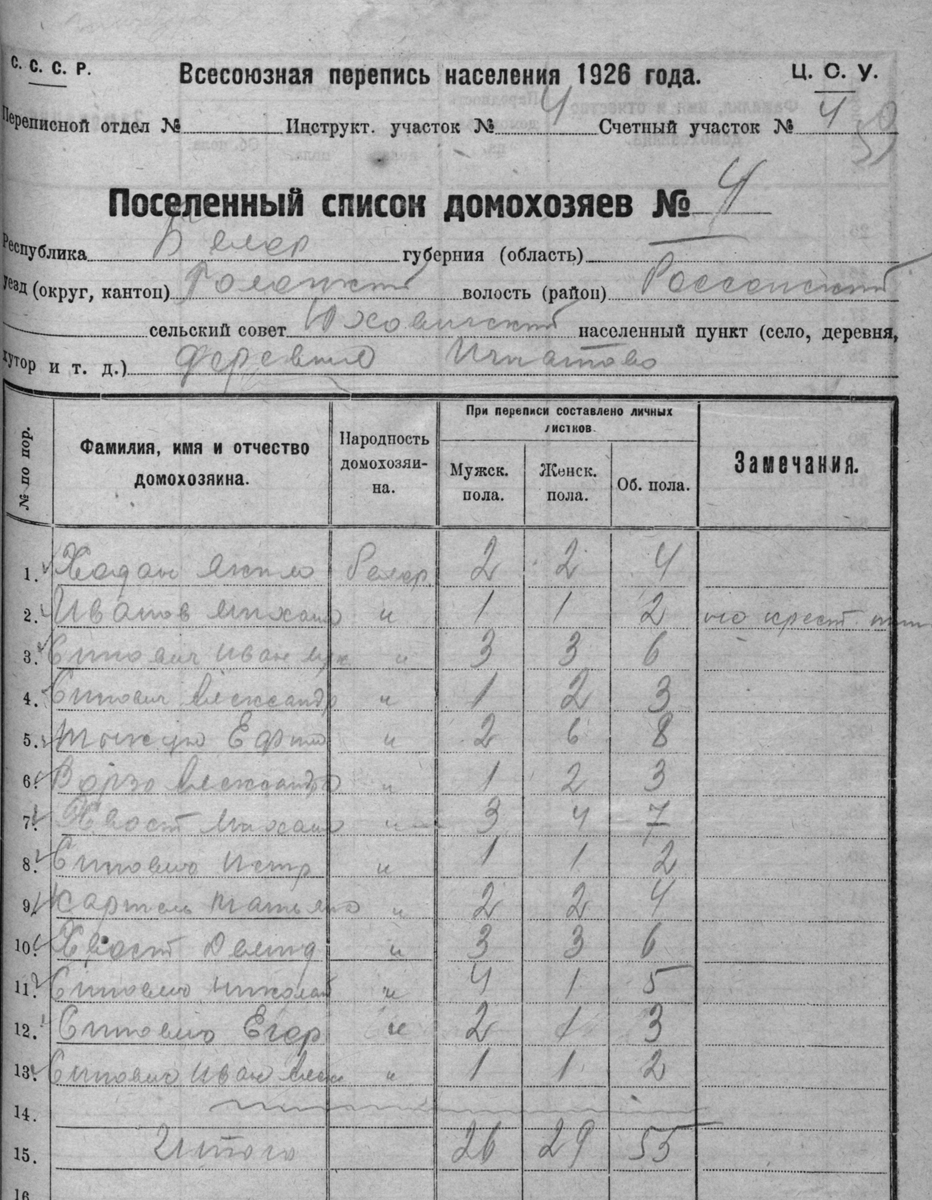 С. С. С. Р.
Всесоюзная перепись населения 1926 года.
Ц. С. У.
Переписной отдел № Инструкт. участок № 4 Счетный участок № 4
Поселенный список домохозяев № 4
Республика Белор губерния (область)
уезд (округ, кантон) Полоцкий волость (район) Россонский
сельский совет Юховичский населенный пункт (село, деревня,
хутор и т. д.) деревня Игнатово
№ по пор.
Фамилия, имя и отчество домохозяина.
Народность домохозяи-на.
При переписи составлено личных листков.
Мужск. пола.
Женск. пола.
Об. пола.
Замечания.
1. белор 2 2 4
2. Иванов Михаил " 1 1 2 крест.
3. Иван " 3 3 6
4. Александр " 1 2 3
5. Ефим " 2 6 8
6. Александр " 1 2 3
7. Хвост Михаил " 3 4 7
8. Петр " 1 1 2
9. Татьяна " 2 2 4
10. Хвост " 3 3 6
11. Николай " 4 1 5
12. Егор " 2 1 3
13. Иван " 1 1 2
14.
15. Итого 26 29 55
16